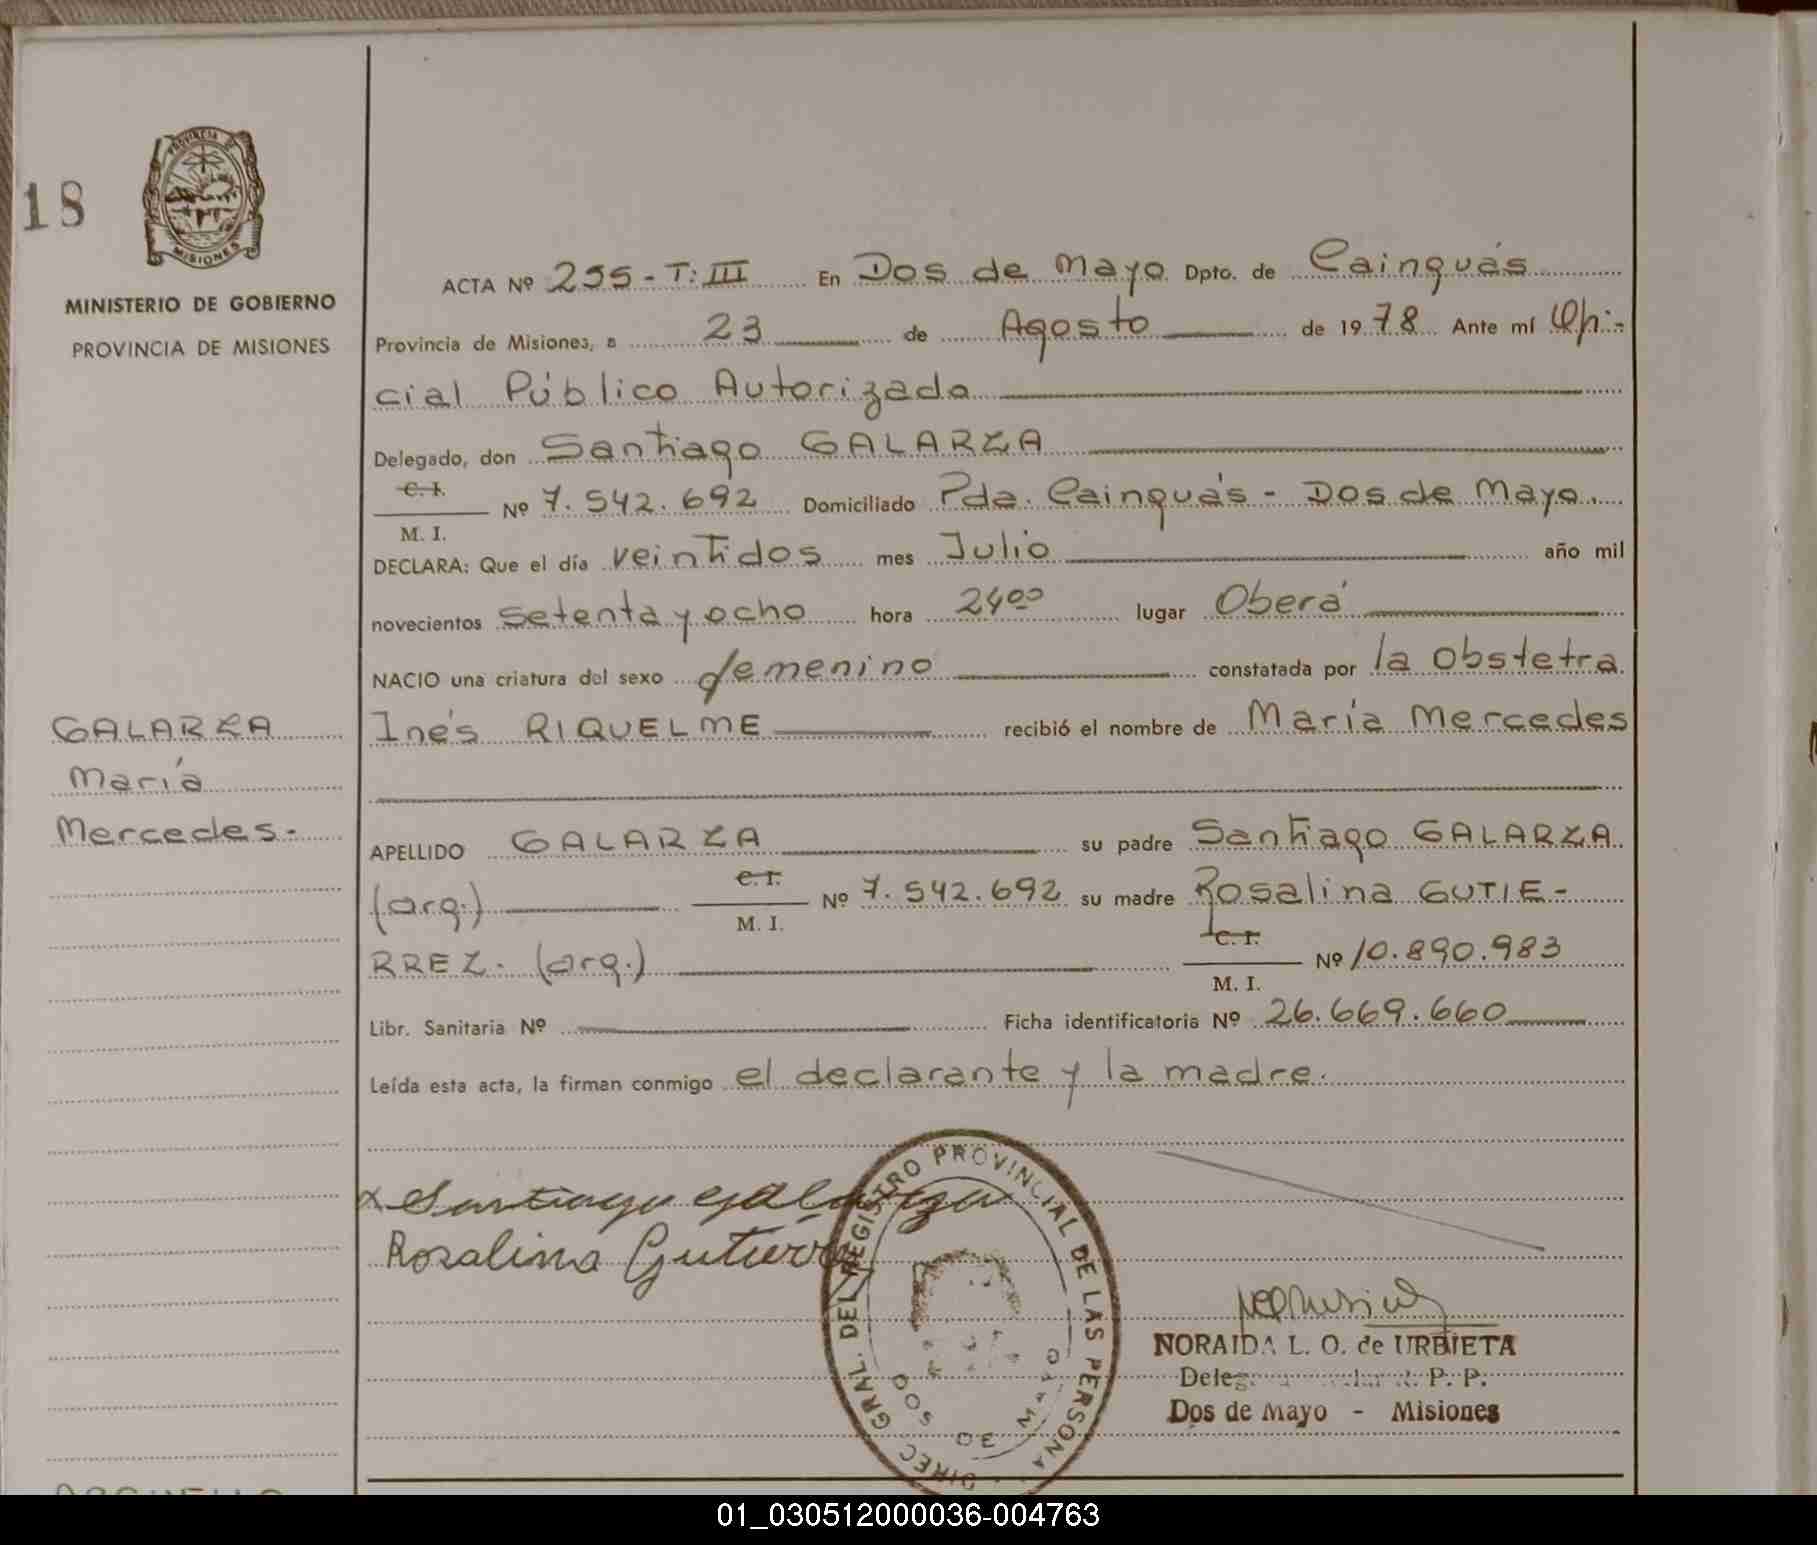 18
PROVINCIA DE
MISIONES
MINISTERIO DE GOBIERNO
PROVINCIA DE MISIONES
ACTA Nº 255 - T: III En Dos de Mayo Dpto. de Cainguás
Provincia de Misiones, a 23 de Agosto de 1978 Ante mí Ofi-
cial Público Autorizado
Delegado, don Santiago GALARZA
C. I.
M. I. Nº 7.542.692 Domiciliado Pda. Cainguás - Dos de Mayo.
DECLARA: Que el día veintidos mes Julio año mil
novecientos setenta y ocho hora 2400 lugar Oberá
NACIO una criatura del sexo femenino constatada por la obstetra
Inés RIQUELME recibió el nombre de María Mercedes
GALARZA
María
Mercedes.-
APELLIDO GALARZA su padre Santiago GALARZA
(arg.) C. I.
M. I. Nº 7.542.692 su madre Rosalina GUTIE-
RREZ. (arg.) C. I.
M. I. Nº 10.890.983
Libr. Sanitaria Nº Ficha identificatoria Nº 26.669.660
Leída esta acta, la firman conmigo el declarante y la madre.
x Santiago galarza
Rosalina Gutierre
DIREC. GRAL. DEL REGISTRO PROVINCIAL DE LAS PERSONA
DOS DE MAYO
NORAIDA L. O. de URBIETA
P. P.
Dos de Mayo - Misiones
01_030512000036-004763